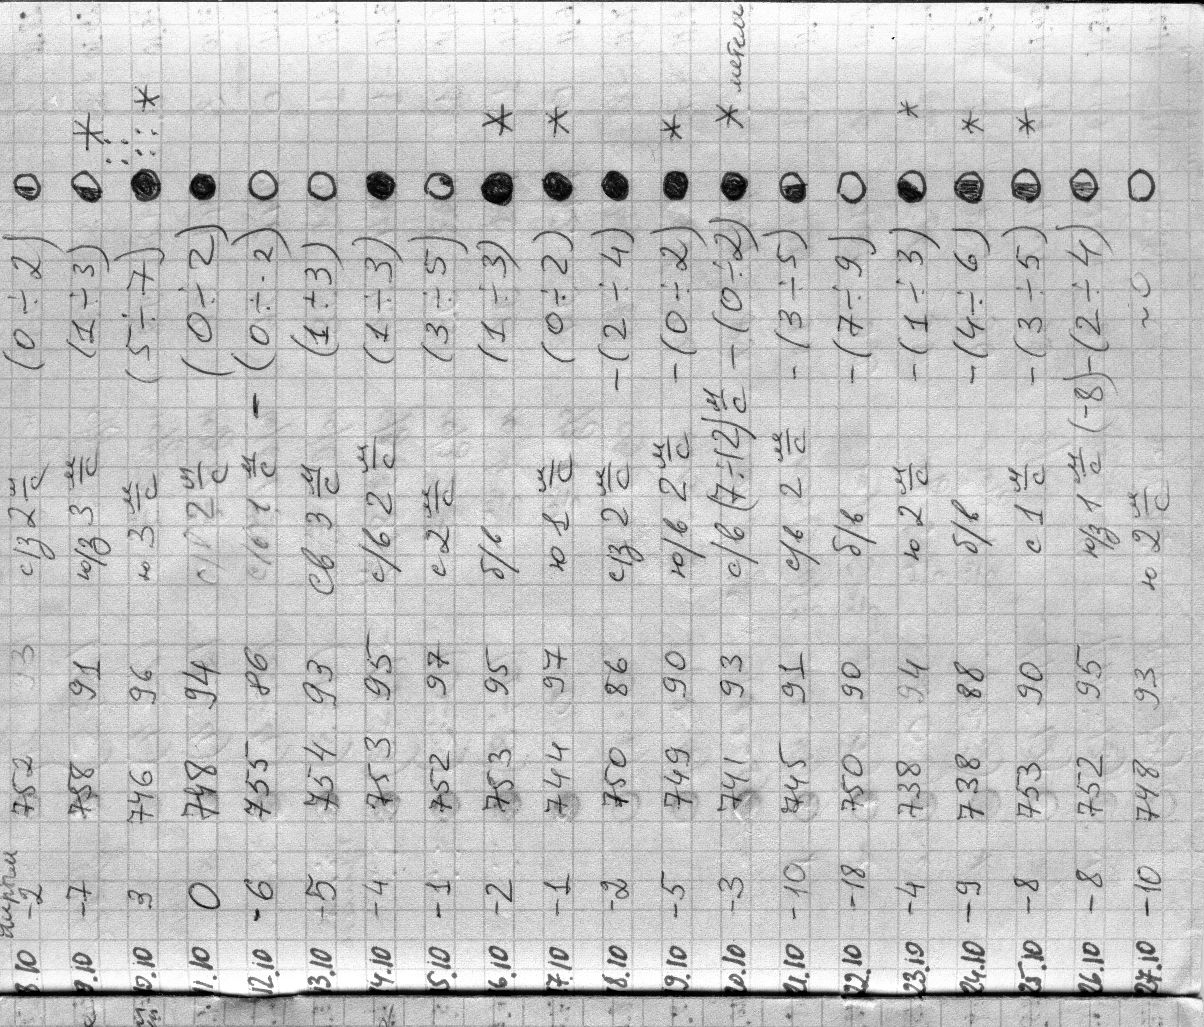 8.10 -2 752 93 с/з 2 м/с (0÷2)
9.10 -7 758 91 ю/з 3 м/с (1÷3)
10.10 3 746 96 ю 3 м/с (5÷7)
11.10 0 748 94 2 м/с (0÷2)
12.10 -6 755 86 1 м/с -(0÷2)
13.10 -5 754 93 СВ 3 м/с (1÷3)
14.10 -4 753 95 с/в 2 м/с (1÷3)
15.10 -1 752 97 с 2 м/с (3÷5)
16.10 -2 753 95 б/в (1÷3)
17.10 -1 744 97 ю 1 м/с (0÷2)
18.10 -2 750 86 с/з 2 м/с -(2÷4)
19.10 -5 749 90 ю/в 2 м/с -(0÷2)
20.10 -3 741 93 с/в (7÷12) м/с -(0÷2) метель
21.10 -10 745 91 с/в 2 м/с -(3÷5)
22.10 -18 750 90 б/в -(7÷9)
23.10 -4 738 94 ю 2 м/с -(1÷3)
24.10 -9 738 88 б/в -(4÷6)
25.10 -8 753 90 с 1 м/с -(3÷5)
26.10 -8 752 95 ю/з 1 м/с (-8) -(2÷4)
27.10 -10 748 93 ю 2 м/с ~0